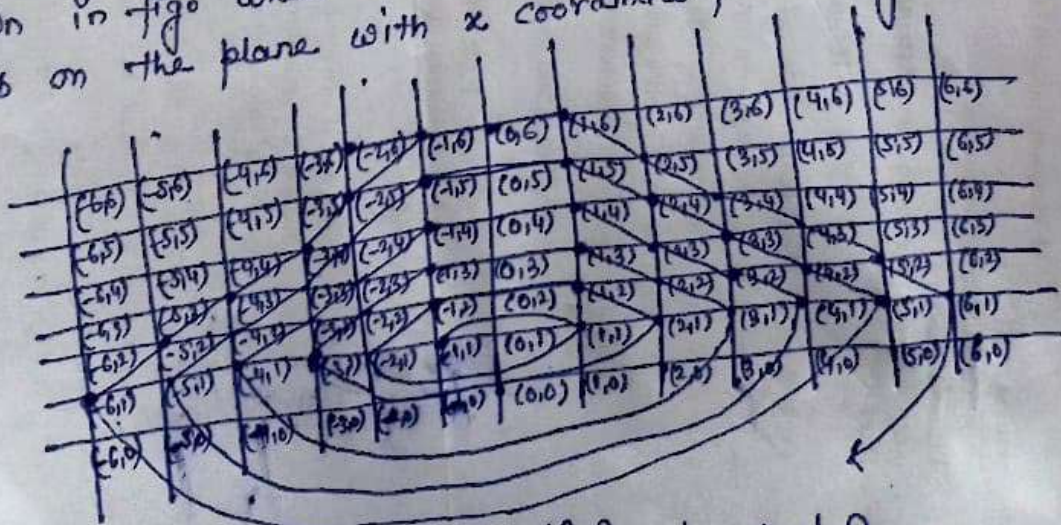 in fig.
on the plane with x coordinate,
(-6,6) (-5,6) (-4,6) (-3,6) (-2,6) (-1,6) (0,6) (1,6) (2,6) (3,6) (4,6) (5,6) (6,6)
(-6,5) (-5,5) (-4,5) (-3,5) (-2,5) (-1,5) (0,5) (1,5) (2,5) (3,5) (4,5) (5,5) (6,5)
(-6,4) (-5,4) (-4,4) (-2,4) (-1,4) (0,4) (1,4) (2,4) (3,4) (4,4) (5,4) (6,4)
(-6,3) (-4,3) (-3,3) (-2,3) (-1,3) (0,3) (1,3) (2,3) (3,3) (4,3) (5,3) (6,3)
(-6,2) (-5,2) (-4,2) (-3,2) (-2,2) (-1,2) (0,2) (1,2) (2,2) (3,2) (4,2) (5,2) (6,2)
(-6,1) (-5,1) (-4,1) (-3,1) (-2,1) (-1,1) (0,1) (1,1) (2,1) (3,1) (4,1) (5,1) (6,1)
(-6,0) (-5,0) (-4,0) (-3,0) (0,0) (1,0) (2,0) (3,0) (4,0) (5,0) (6,0)